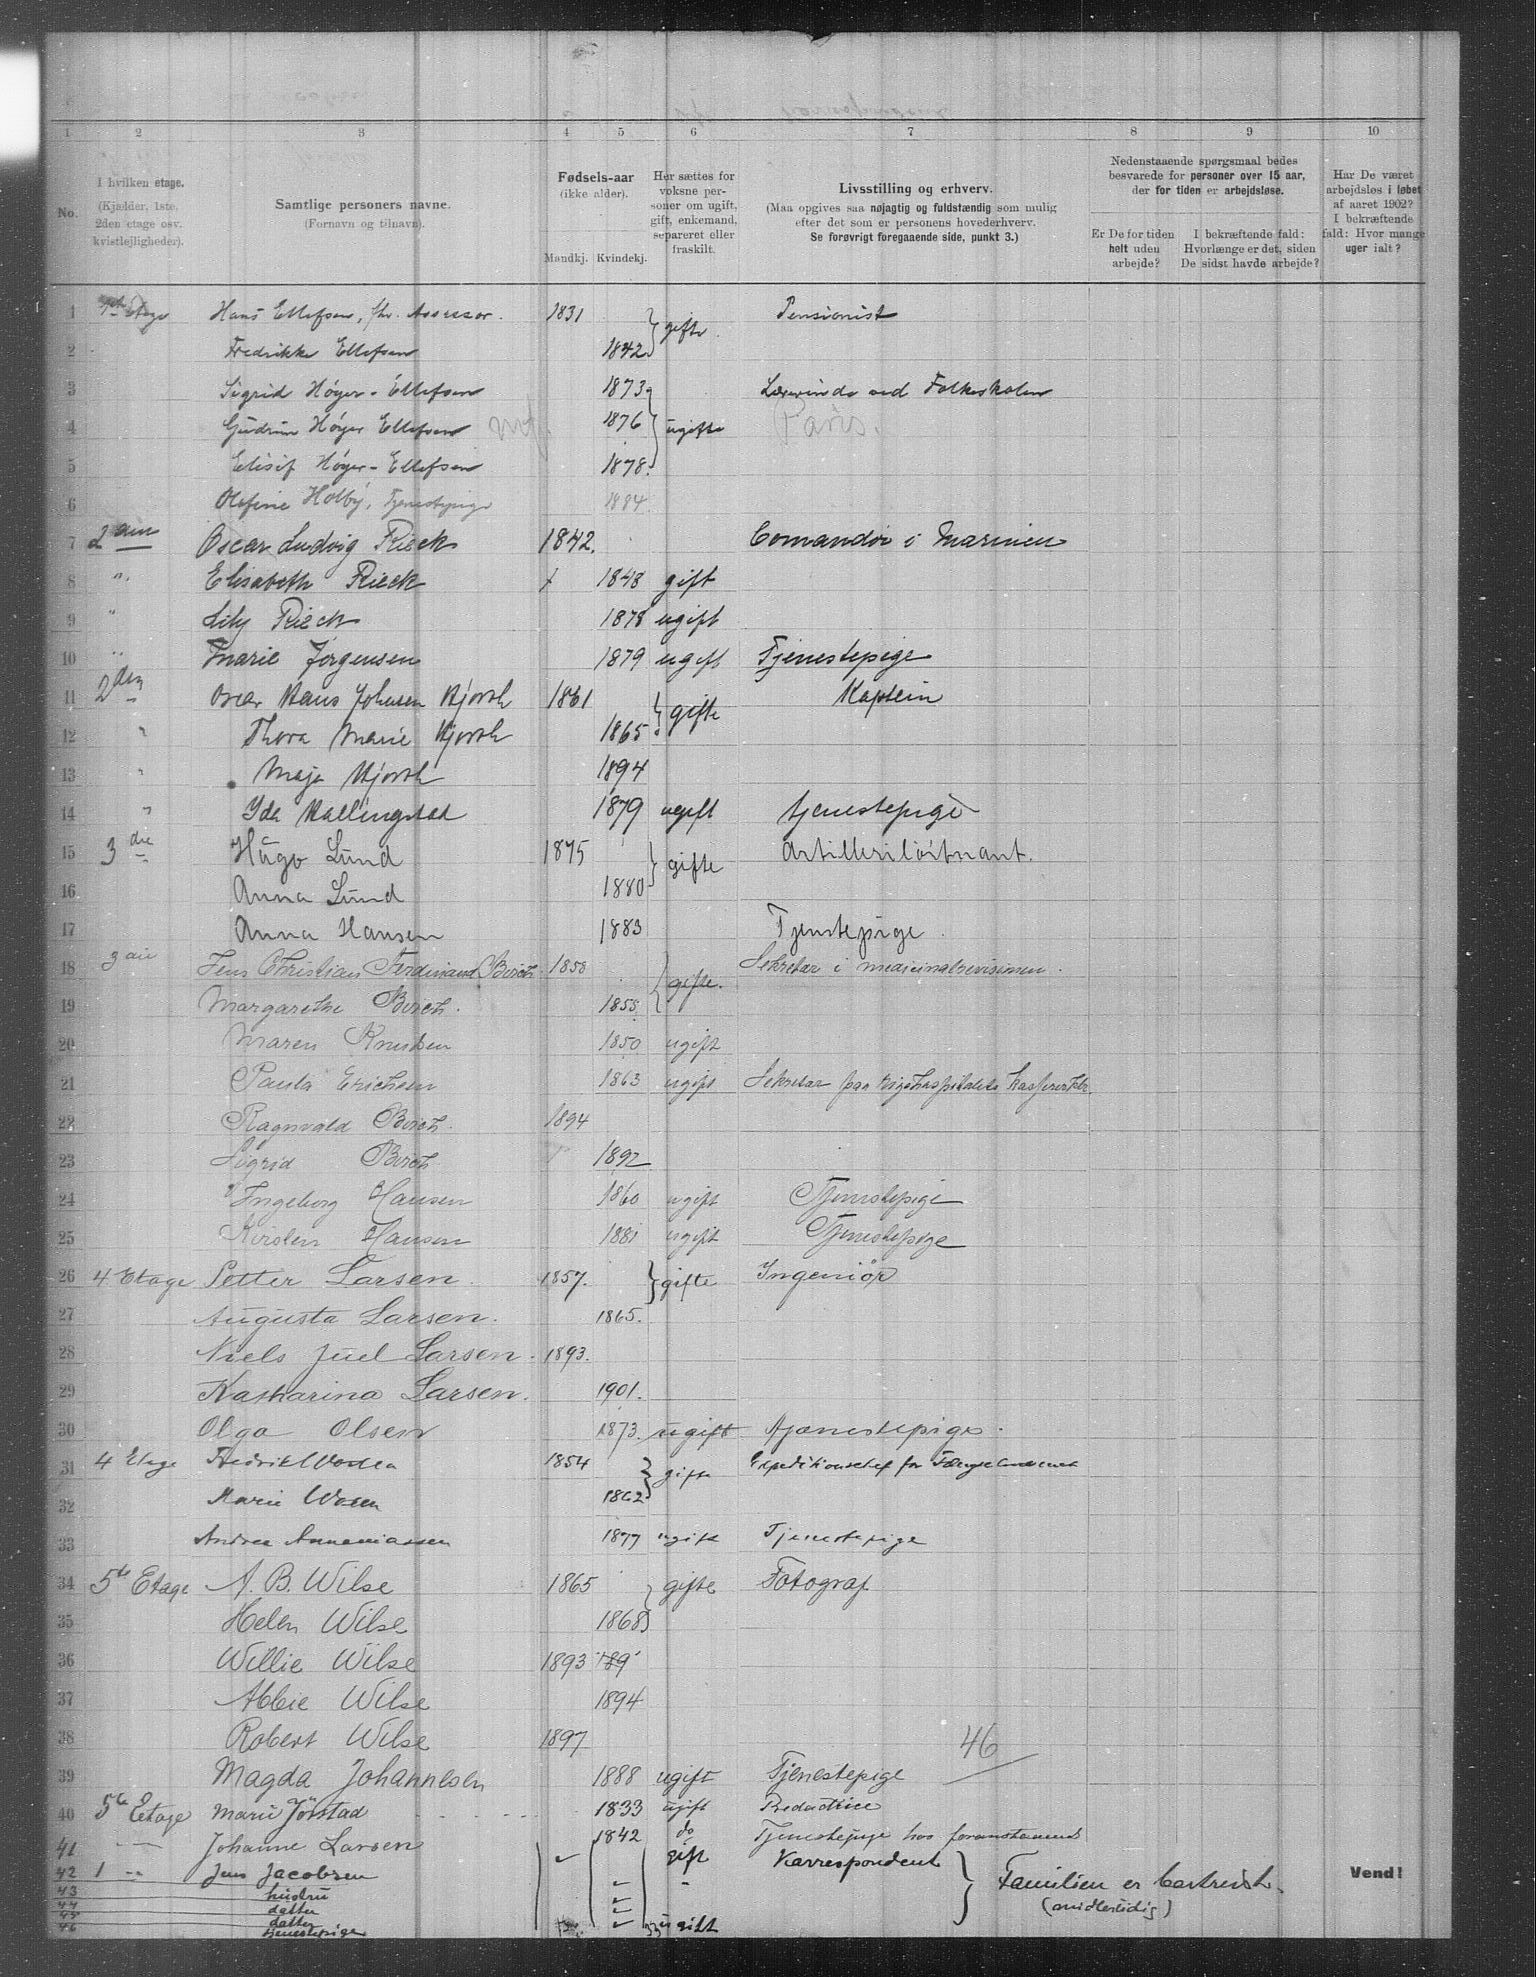 1 2 3 4 5 6 7 8 9 10
No.
I hvilken etage.
(Kjælder, 1ste,
2den etage osv.
kvistlejligheder).
Samtlige personers navne.
(Fornavn og tilnavn).
Fødsels-aar
(ikke alder).
Mandkj. Kvindekj.
Her sættes for
voksne per-
soner om ugift,
gift, enkemand,
separeret eller
fraskilt.
Livsstilling og erhverv.
(Maa opgives saa nøjagtig og fuldstændig som mulig
efter det som er personens hovederhverv.
Se forøvrigt foregaaende side, punkt 3.)
Nedenstaaende spørgsmaal bedes
besvarede for personer over 15 aar,
der for tiden er arbejdsløse.
Er De for tiden
helt uden
arbejde?
I bekræftende fald:
Hvorlænge er det, siden
De sidst havde arbejde?
Har De været
arbejdsløs i løbet
af aaret 1902?
I bekræftende
fald: Hvor mange
uger ialt?
1 Etage Hans Ellefsen, fhv. Assessor. 1831 gifte Pensionist
2 Fredrikke Ellefsen 1842
3 Sigrid Høyer-Ellefsen 1873 Lærerinde ved Folkeskolen
4 Gudrun Høyer Ellefsen 1876 ugifte Paris.
5 Elisif Høyer-Ellefsen 1878.
6 Olefine Holby, Tjenestepige 1884
7 2den Oscar Ludvig Rieck 1842. Comandør i Marinen
8 " Elisabeth Rieck 1848 gift
9 " Lily Rieck 1878 ugift
10 " Marie Jørgensen 1879 ugift Tjenestepige
11 2den Oscar Hans Johnsen Hjorth 1861 gifte Kaptein
12 " Thora Marie Hjorth 1865
13 " Maja Hjorth 1894
14 " Ida Hallingstad 1879 ugift tjenestepige
15 3die Hugo Lund 1875 gifte Artilleriløitnant.
16 Anna Lund 1880
17 Anna Hansen 1883 Tjenstepige.
18 3die Jens Christian Ferdinand Birch 1858 gifte. Sekretær i medicinalrevisionen.
19 Margarethe Birch. 1855
20 Maren Knudsen 1850 ugift
21 Paula Erichsen 1863 ugift Sekretær paa Rigshospitalets
22 Ragnvald Birch. 1894
23 Sigrid Birch 1892
24 Ingeborg Hansen 1860 ugift Tjenestepige
25 Kirsten Hansen 1881 ugift Tjenestepige
26 4 Etage Petter Larsen. 1857. gifte Ingeniør
27 Augusta Larsen. 1865.
28 Niels Juel Larsen. 1893.
29 Katharina Larsen. 1901.
30 Olga Olsen 1873. ugift tjenestepige.
31 4 Etage Fredrik Woxen 1854 gifte Expeditionschef for Fængselvæsenet
32 Marie Woxen 1862
33 Andrea Annaniassen 1877 ugift Tjenestepige
34 5te Etage A. B. Wilse 1865 gifte Fotograf
35 Helen Wilse 1868
36 Willie Wilse 1893 189
37 Abbie Wilse 1894
38 Robert Wilse 1897 46
39 Magda Johannesen 1888 ugift Tjenestepige
40 5te Etage Marie Jørstad 1833 ugift Redactrice
41 Johanne Larsen 1842 do Tjenestepige hos foranstaaend
42 1 " Jens Jacobsen gift Korrespondent Familien er bortreist. Vend!
43 hustru " (midlertidig)
44 datter
45 datter
46 tjenestepige ugift